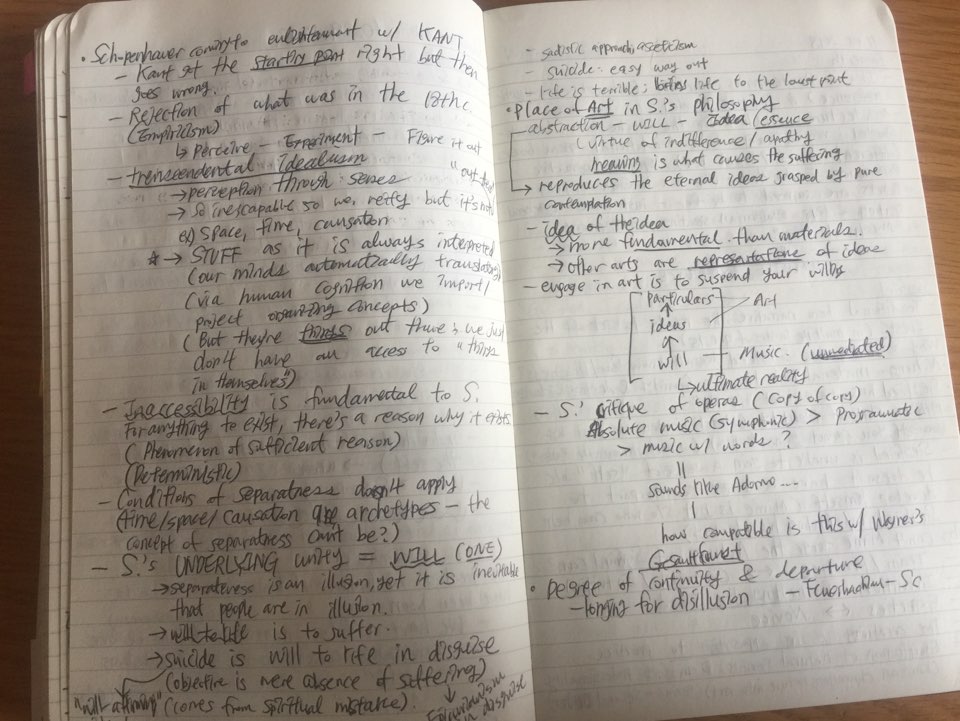 • Schopenhauer coming to enlightenment w/ KANT
- Kant got the starting point right but then
goes wrong.
- Rejection of what was in the 18thc
(Empiricism)
↳ Perceive - Experiment - Figure it out
- transcendental idealism "out there"
→ perception through senses
→ so inescapable so we reify but it's not
ex) Space, time, causation
* → STUFF as it is always interpreted
(our minds automatically translates)
(via human cognition we import/
project organizing concepts)
(But they're things out there; we just
don't have an access to "things
in themselves")
- Inaccessibility is fundamental to S.
For anything to exist, there's a reason why it exists
(Phenomenon of sufficient reason)
(Deterministic)
- Conditions of separatness doesn't apply
(time/space/causation are archetypes - the
concept of separatness can't be?)
- S.'s UNDERLYING unity = WILL (ONE)
→ separateness is an illusion, yet it is inevitable
that people are in illusion.
→ will to life is to suffer.
→ suicide is will to life in disguise
(objective is mere absence of suffering)
"will affirming" (comes from spiritual mistake).
in disguise
- sadistic approach, asceticism
- suicide: easy way out
- life is terrible: brings life to the lowest point
• Place of Art in S.'s philosophy
abstraction - WILL - Idea (essence
(virtue of indifference/apathy
meaning is what causes the suffering
→ reproduces the eternal ideas grasped by pure
contemplation
- idea of the idea
→ more fundamental than materials.
→ other arts are representations of ideas
- engage in art is to suspend your willing
Particulars Art
↑
ideas
↑
will - Music. (unmediated)
↳ ultimate reality
- S.' critique of operas (copy of copy)
Absolute music (symphonic) > Programmatic
> music w/ words?
||
sounds like Adorno....
|
how compatible is this w/ Wagner's
• Degree of continuity & departure
- longing for disillusion